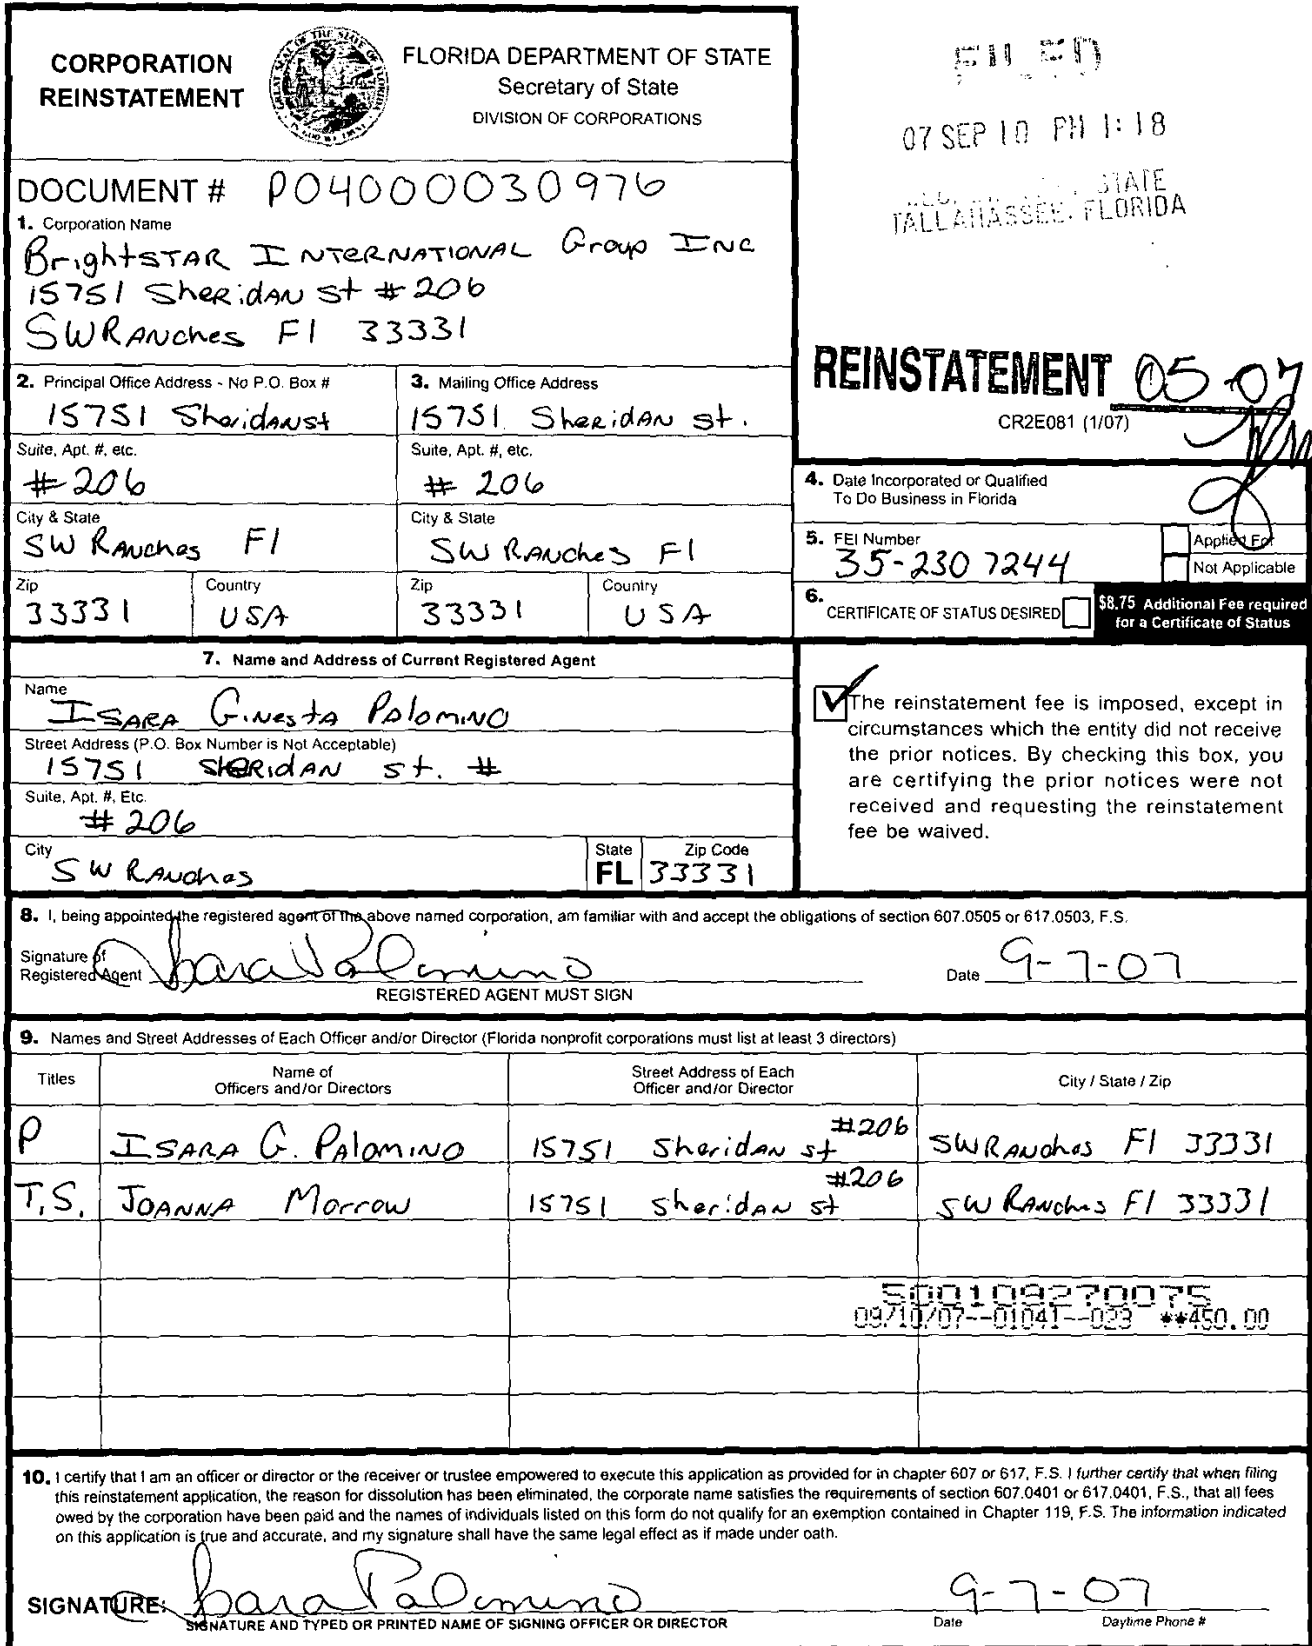 CORPORATION
REINSTATEMENT
FLORIDA DEPARTMENT OF STATE
Secretary of State
DIVISION OF CORPORATIONS
FILED
07 SEP 10 PM 1:18
STATE
TALLAHASSEE, FLORIDA
DOCUMENT # P04000030976
1. Corporation Name
BrightSTAR INTERNATIONAL Group INC
15751 SheridAN St # 206
SW RANches Fl 33331
REINSTATEMENT 05-07
CR2E081 (1/07)
2. Principal Office Address - No P.O. Box #
15751 SheridAN st
Suite, Apt. #, etc.
# 206
City & State
SW RANches Fl
Zip
33331
Country
USA
3. Mailing Office Address
15751 SheRidAN st.
Suite, Apt. #, etc.
# 206
City & State
SW RANches Fl
Zip
33331
Country
USA
4. Date Incorporated or Qualified
To Do Business in Florida
5. FEI Number
35-2307244
Applied For
Not Applicable
6. CERTIFICATE OF STATUS DESIRED
$8.75 Additional Fee required
for a Certificate of Status
7. Name and Address of Current Registered Agent
Name
ISARA GiNestA PAlomiNO
Street Address (P.O. Box Number is Not Acceptable)
15751 SHERIDAN st. #
Suite, Apt. #, Etc.
# 206
City
SW RANches
State
FL
Zip Code
33331
The reinstatement fee is imposed, except in
circumstances which the entity did not receive
the prior notices. By checking this box, you
are certifying the prior notices were not
received and requesting the reinstatement
fee be waived.
8. I, being appointed the registered agent of the above named corporation, am familiar with and accept the obligations of section 607.0505 or 617.0503, F.S.
Signature of
Registered Agent Isara Palomino
Date 9-7-07
REGISTERED AGENT MUST SIGN
9. Names and Street Addresses of Each Officer and/or Director (Florida nonprofit corporations must list at least 3 directors)
Titles
Name of
Officers and/or Directors
Street Address of Each
Officer and/or Director
City / State / Zip
P ISARA G. PAlomiNO 15751 Sheridan st #206 SW RANches Fl 33331
T,S. JOANNA Morrow 15751 SheridAN st #206 SW RANches Fl 33331
500109270075
09/10/07--01041--023 **450.00
10. I certify that I am an officer or director or the receiver or trustee empowered to execute this application as provided for in chapter 607 or 617, F.S. I further certify that when filing
this reinstatement application, the reason for dissolution has been eliminated, the corporate name satisfies the requirements of section 607.0401 or 617.0401, F.S., that all fees
owed by the corporation have been paid and the names of individuals listed on this form do not qualify for an exemption contained in Chapter 119, F.S. The information indicated
on this application is true and accurate, and my signature shall have the same legal effect as if made under oath.
SIGNATURE: Isara Palomino 9-7-07
SIGNATURE AND TYPED OR PRINTED NAME OF SIGNING OFFICER OR DIRECTOR
Date
Daytime Phone #